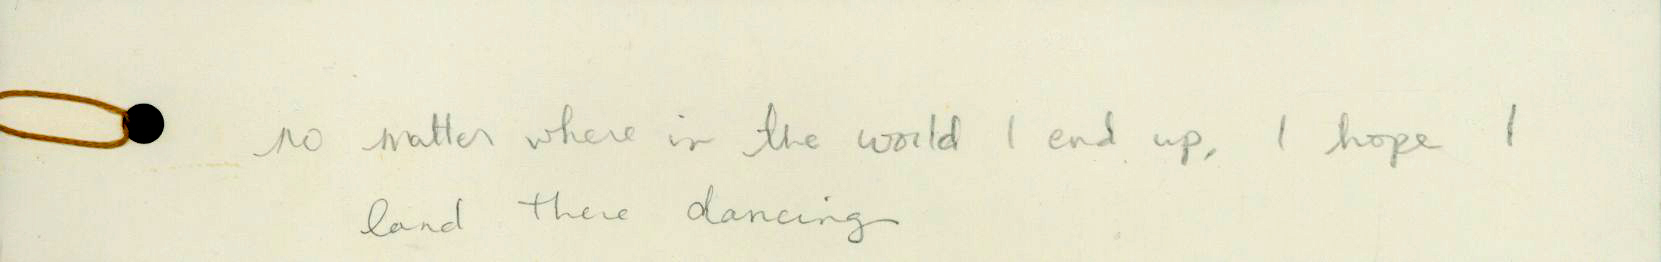 no matter where in the world I end up, I hope I
land there dancing